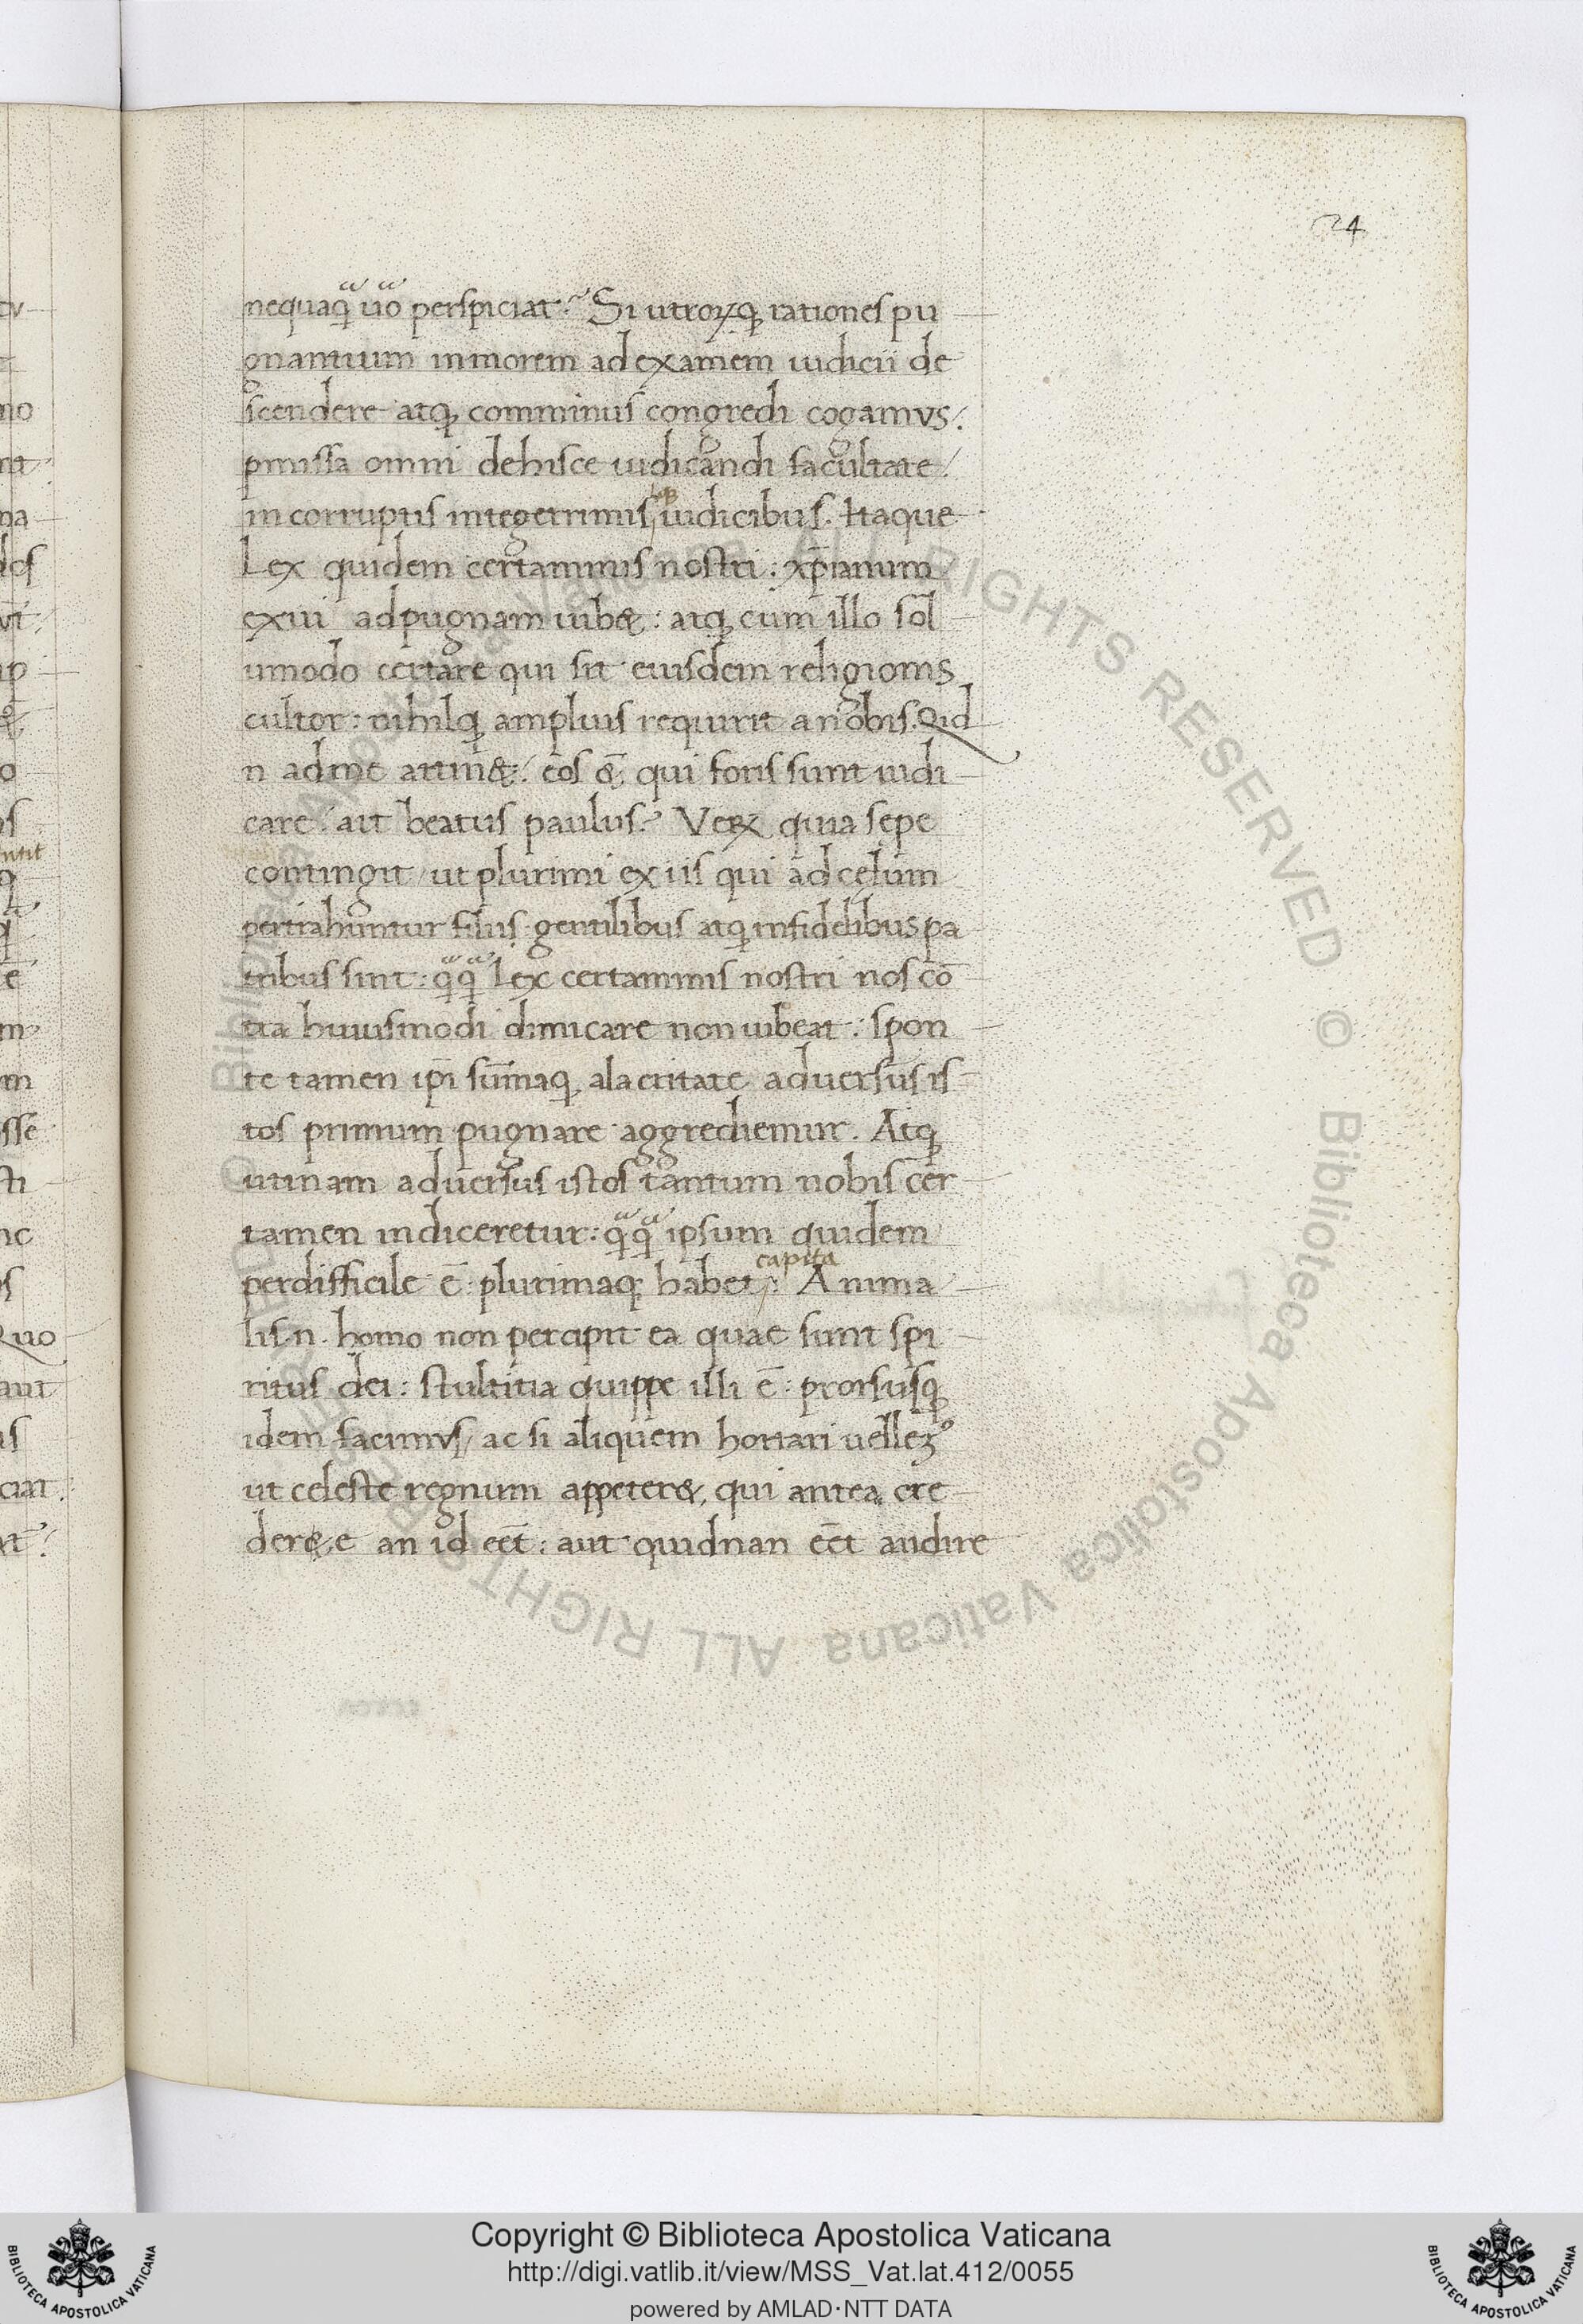 24
nequaꝗ̈ ùo perspiciat. Si utroꝝꝗ rationes pu
gnantium in morem ad examem iudicii de
scendere atꝗ comminus congredi cogamus:
pmissa omni dehisce iudicandi facultate
in corruptis integerrimis iudicibus. Itaque
Lex quidem certaminis nostri: xp̄ianum
exui ad pugnam iub&: atꝗ cum illo sol
umodo certare qui sit eiusdem religionis
cultor: nihilꝗ amplius requirit a nobis. Qid
n ad me attin&: eos ē qui foris sunt iudi
care: ait beatus paulus. Veꝝ quia sepe
contingit ut plurimi ex iis qui ad cęlum
pertrahuntur filiis gentilibus atꝗ infidelibus pa
tribus sint: ꝗꝗ Lex certaminis nostri nos cō
tra huiusmodi dimicare non iubeat: spon
te tamen ip̄i sūmaꝗ alacritate adversus is
tos primum pugnare aggrediemur. Atꝗ
utinam adversus istos tantum nobis cer
tamen indiceretur: ꝗꝗ ipsum quidem
capita
perdifficile ē plurimaꝗ habet: Anima
lis .n. homo non percipit ea quae sunt spi
ritus dei: stultitia quippe illi ē: prorsusꝗ
idem facimus/ ac si aliquem hortari uelleꝫ
ut celeste regnum appeter&, qui antea cre
der& e an id eēt: aut quidnan eēt audire
© Biblioteca Apostolica Vaticana ALL RIGHTS RESERVED © Biblioteca Apostolica Vaticana ALL RIGHTS RESERVED
Copyright © Biblioteca Apostolica Vaticana
http://digi.vatlib.it/view/MSS_Vat.lat.412/0055
powered by AMLAD·NTT DATA
BIBLIOTECA APOSTOLICA VATICANA
BIBLIOTECA APOSTOLICA VATICANA